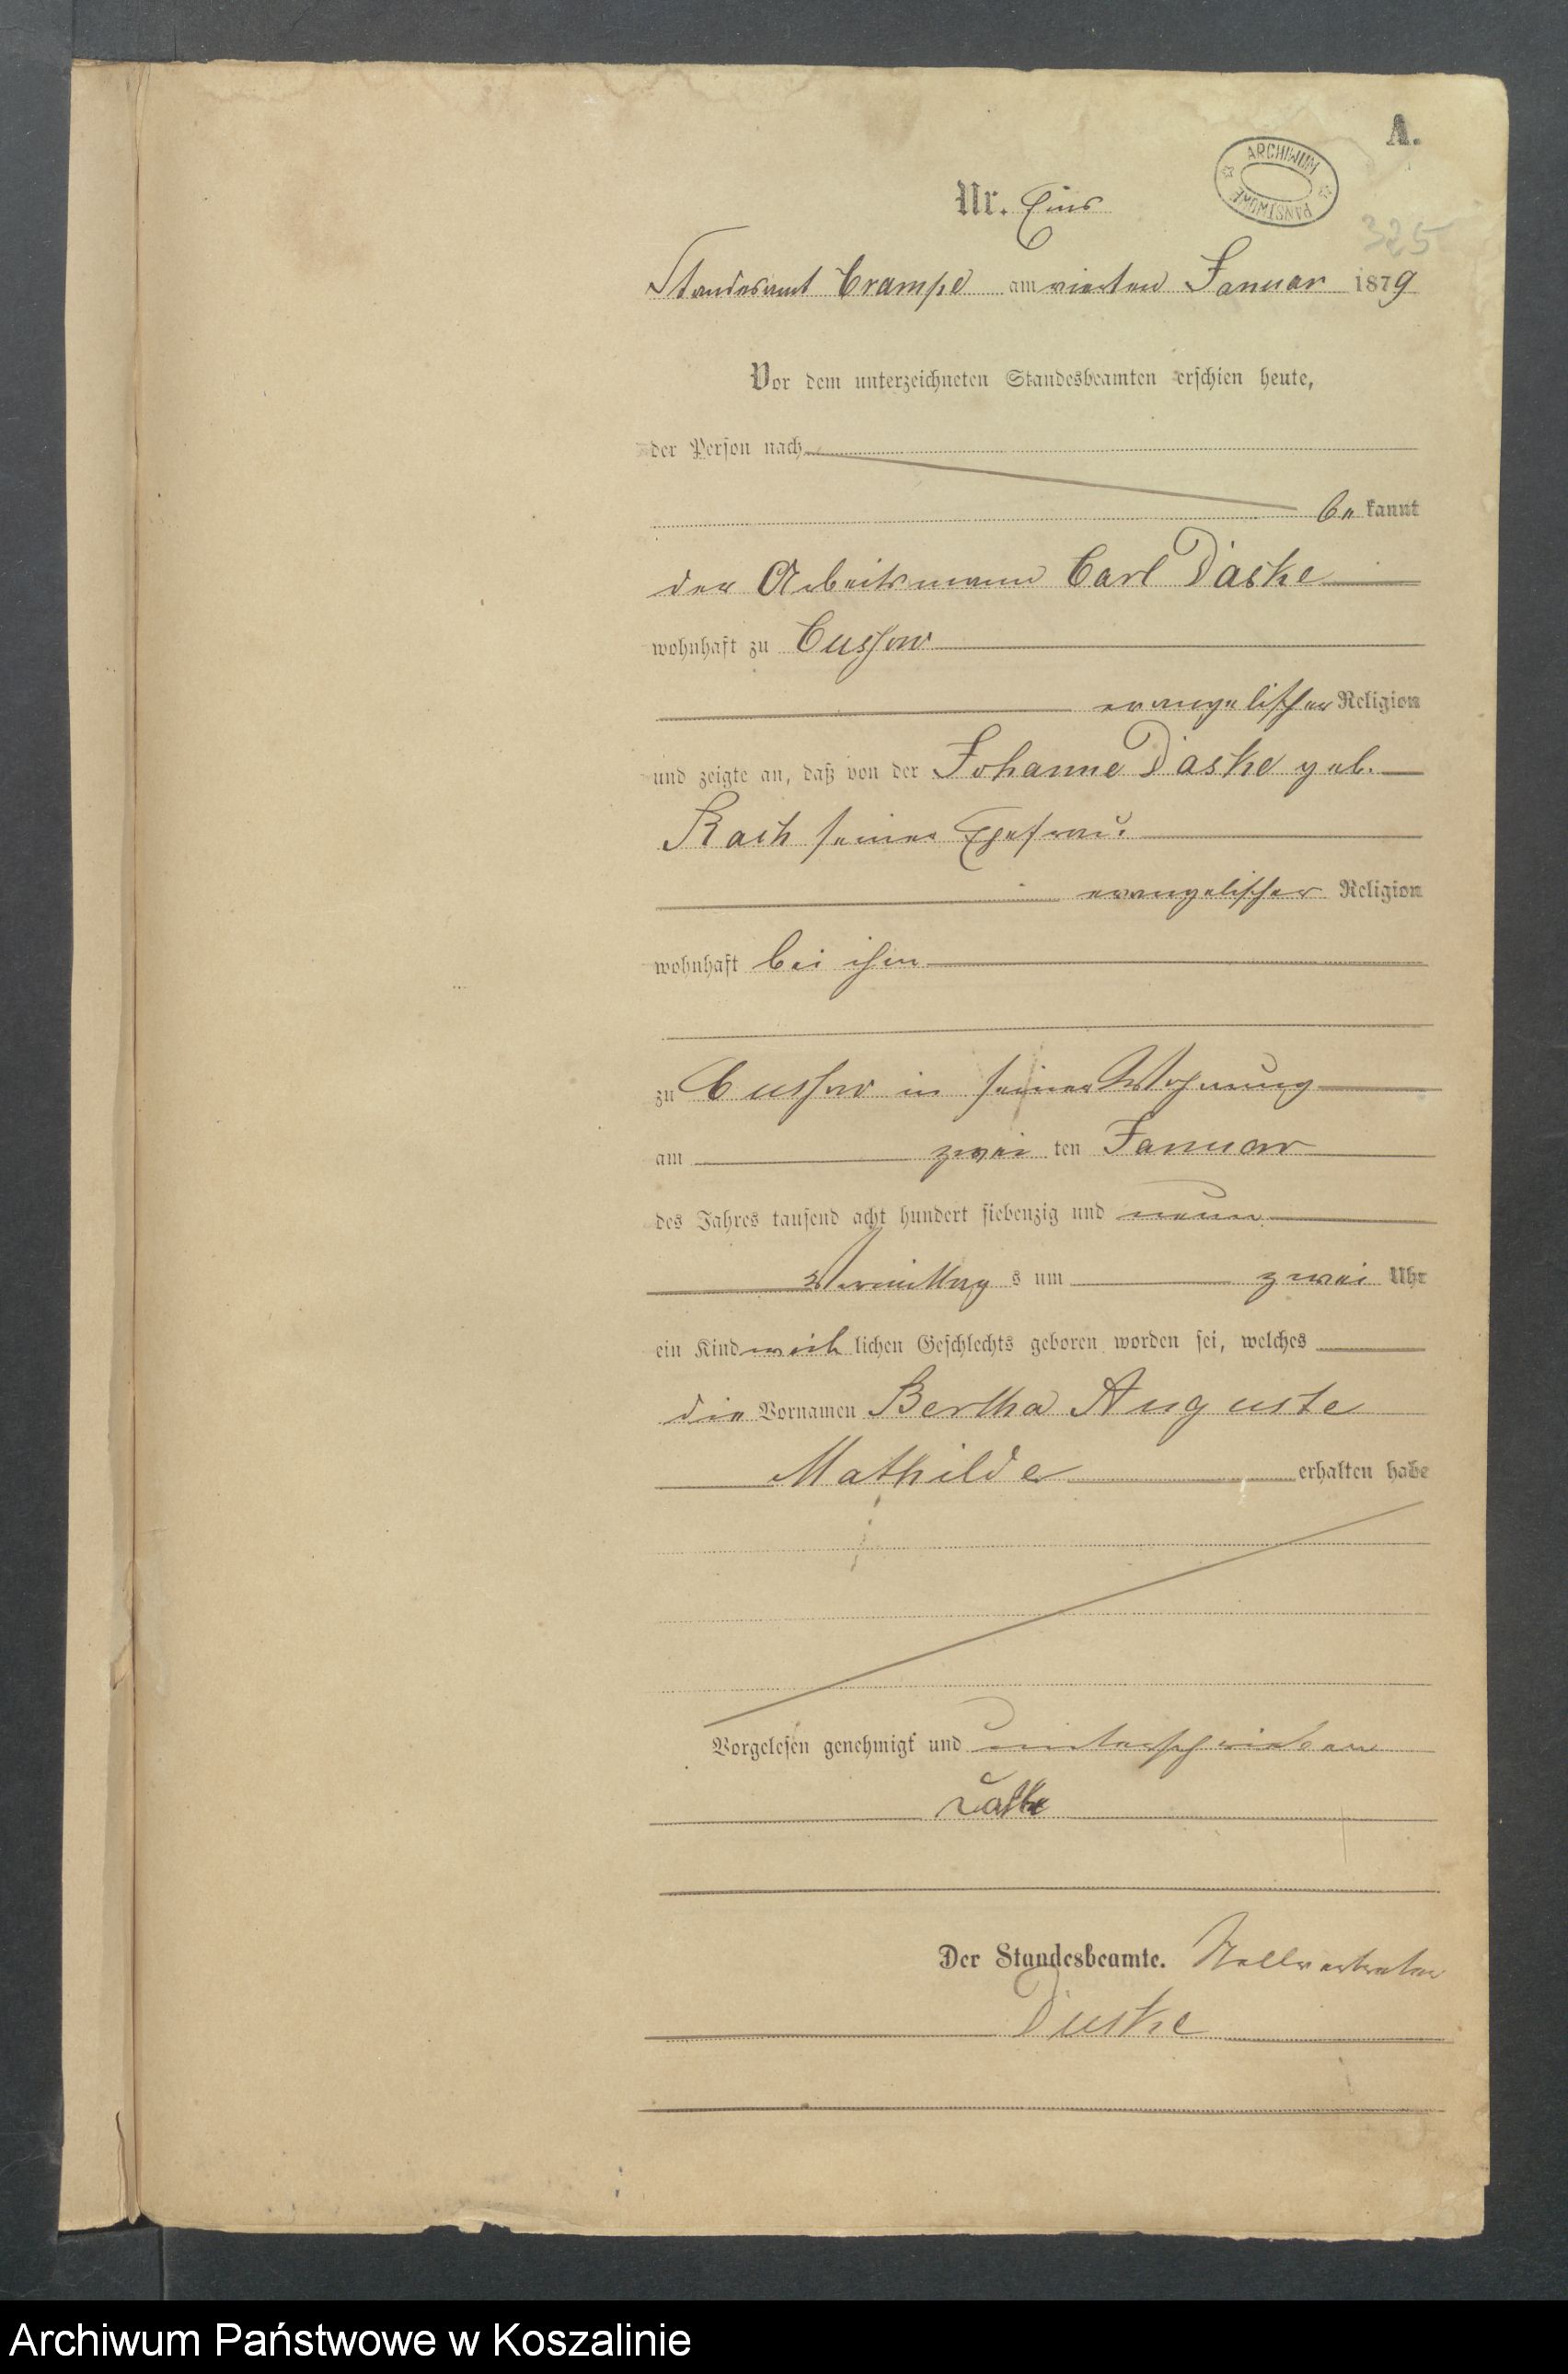 A.
ARCHIWUM PAŃSTWOWE
Nr. Eins
325
Standesamt Crampe am vierten Januar 1879
Vor dem unterzeichneten Standesbeamten erschien heute,
der Person nach
be kannt
der Arbeitsmann Carl Daske
wohnhaft zu Cussow
evangelischer Religion
und zeigte an, daß von der Johanne Daske geb.
Kach seiner Ehefrau
evangelischer Religion
wohnhaft bei ihm
zu Cussow in seiner Wohnung
am zwei ten Januar
des Jahres tausend acht hundert siebenzig und neun
Vormittag s um zwei Uhr
ein Kind weib lichen Geschlechts geboren worden sei, welches
die Vornamen Bertha Auguste
Mathilde erhalten habe
Vorgelesen genehmigt und unterschrieben
Daske
Der Standesbeamte. Stellvertreter
Duske
Archiwum Państwowe w Koszalinie